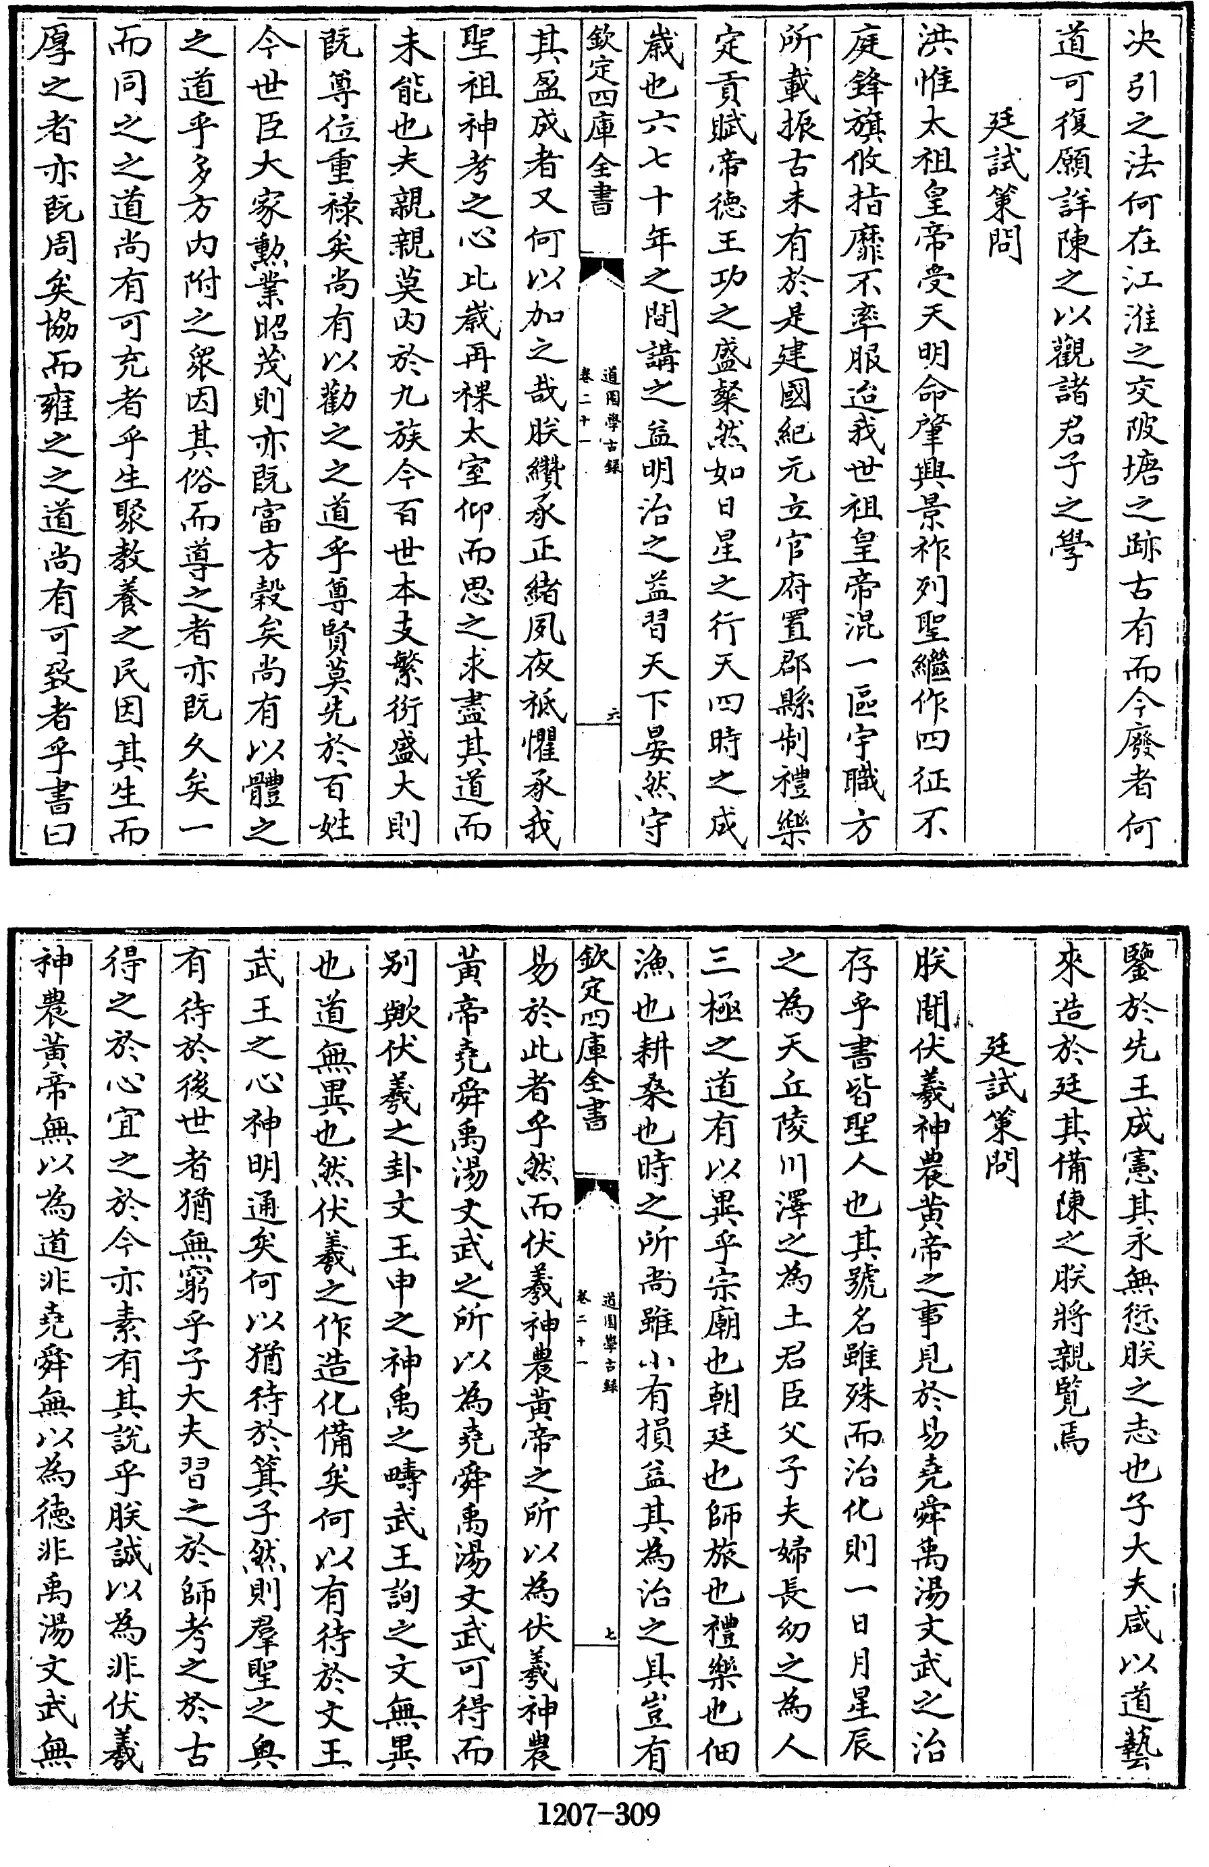 决引之法何在江淮之交陂塘之跡古有而今廢者何
道可復願詳陳之以觀諸君子之學
廷試策問
洪惟太祖皇帝受天明命肇興景祚列聖繼作四征不
庭鋒旗攸指靡不率服迨我世祖皇帝混一區宇職方
所載振古未有於是建國紀元立官府置郡縣制禮樂
定貢賦帝德王功之盛粲然如日星之行天四時之成
歲也六七十年之間講之益明治之益習天下晏然守
欽定四庫全書
道園學古錄
卷二十一
六
其盈成者又何以加之哉朕纘承正緒夙夜祗懼承我
聖祖神考之心比歲再祼太室仰而思之求盡其道而
未能也夫親親莫内於九族今百世本支繁衍盛大則
既尊位重祿矣尚有以勸之之道乎尊賢莫先於百姓
今世臣大家勲業昭茂則亦既富方穀矣尚有以體之
之道乎多方内附之衆因其俗而導之者亦既久矣一
而同之之道尚有可充者乎生聚教養之民因其生而
厚之者亦既周矣協而雍之之道尚有可致者乎書曰
鑒於先王成憲其永無愆朕之志也子大夫咸以道藝
來造於廷其備陳之朕將親覽焉
廷試策問
朕聞伏羲神農黄帝之事見於易堯舜禹湯文武之治
存乎書皆聖人也其號名雖殊而治化則一日月星辰
之為天丘陵川澤之為土君臣父子夫婦長幼之為人
三極之道有以異乎宗廟也朝廷也師旅也禮樂也佃
漁也耕桑也時之所尚雖小有損益其為治之具豈有
欽定四庫全書
道園學古錄
卷二十一
七
易於此者乎然而伏羲神農黄帝之所以為伏羲神農
黄帝堯舜禹湯文武之所以為堯舜禹湯文武可得而
别歟伏羲之卦文王申之神禹之疇武王詢之文無異
也道無異也然伏羲之作造化備矣何以有待於文王
武王之心神明通矣何以猶待於箕子然則羣聖之典
有待於後世者猶無窮乎子大夫習之於師考之於古
得之於心宜之於今亦素有其說乎朕誠以為非伏羲
神農黄帝無以為道非堯舜無以為德非禹湯文武無
1207-309